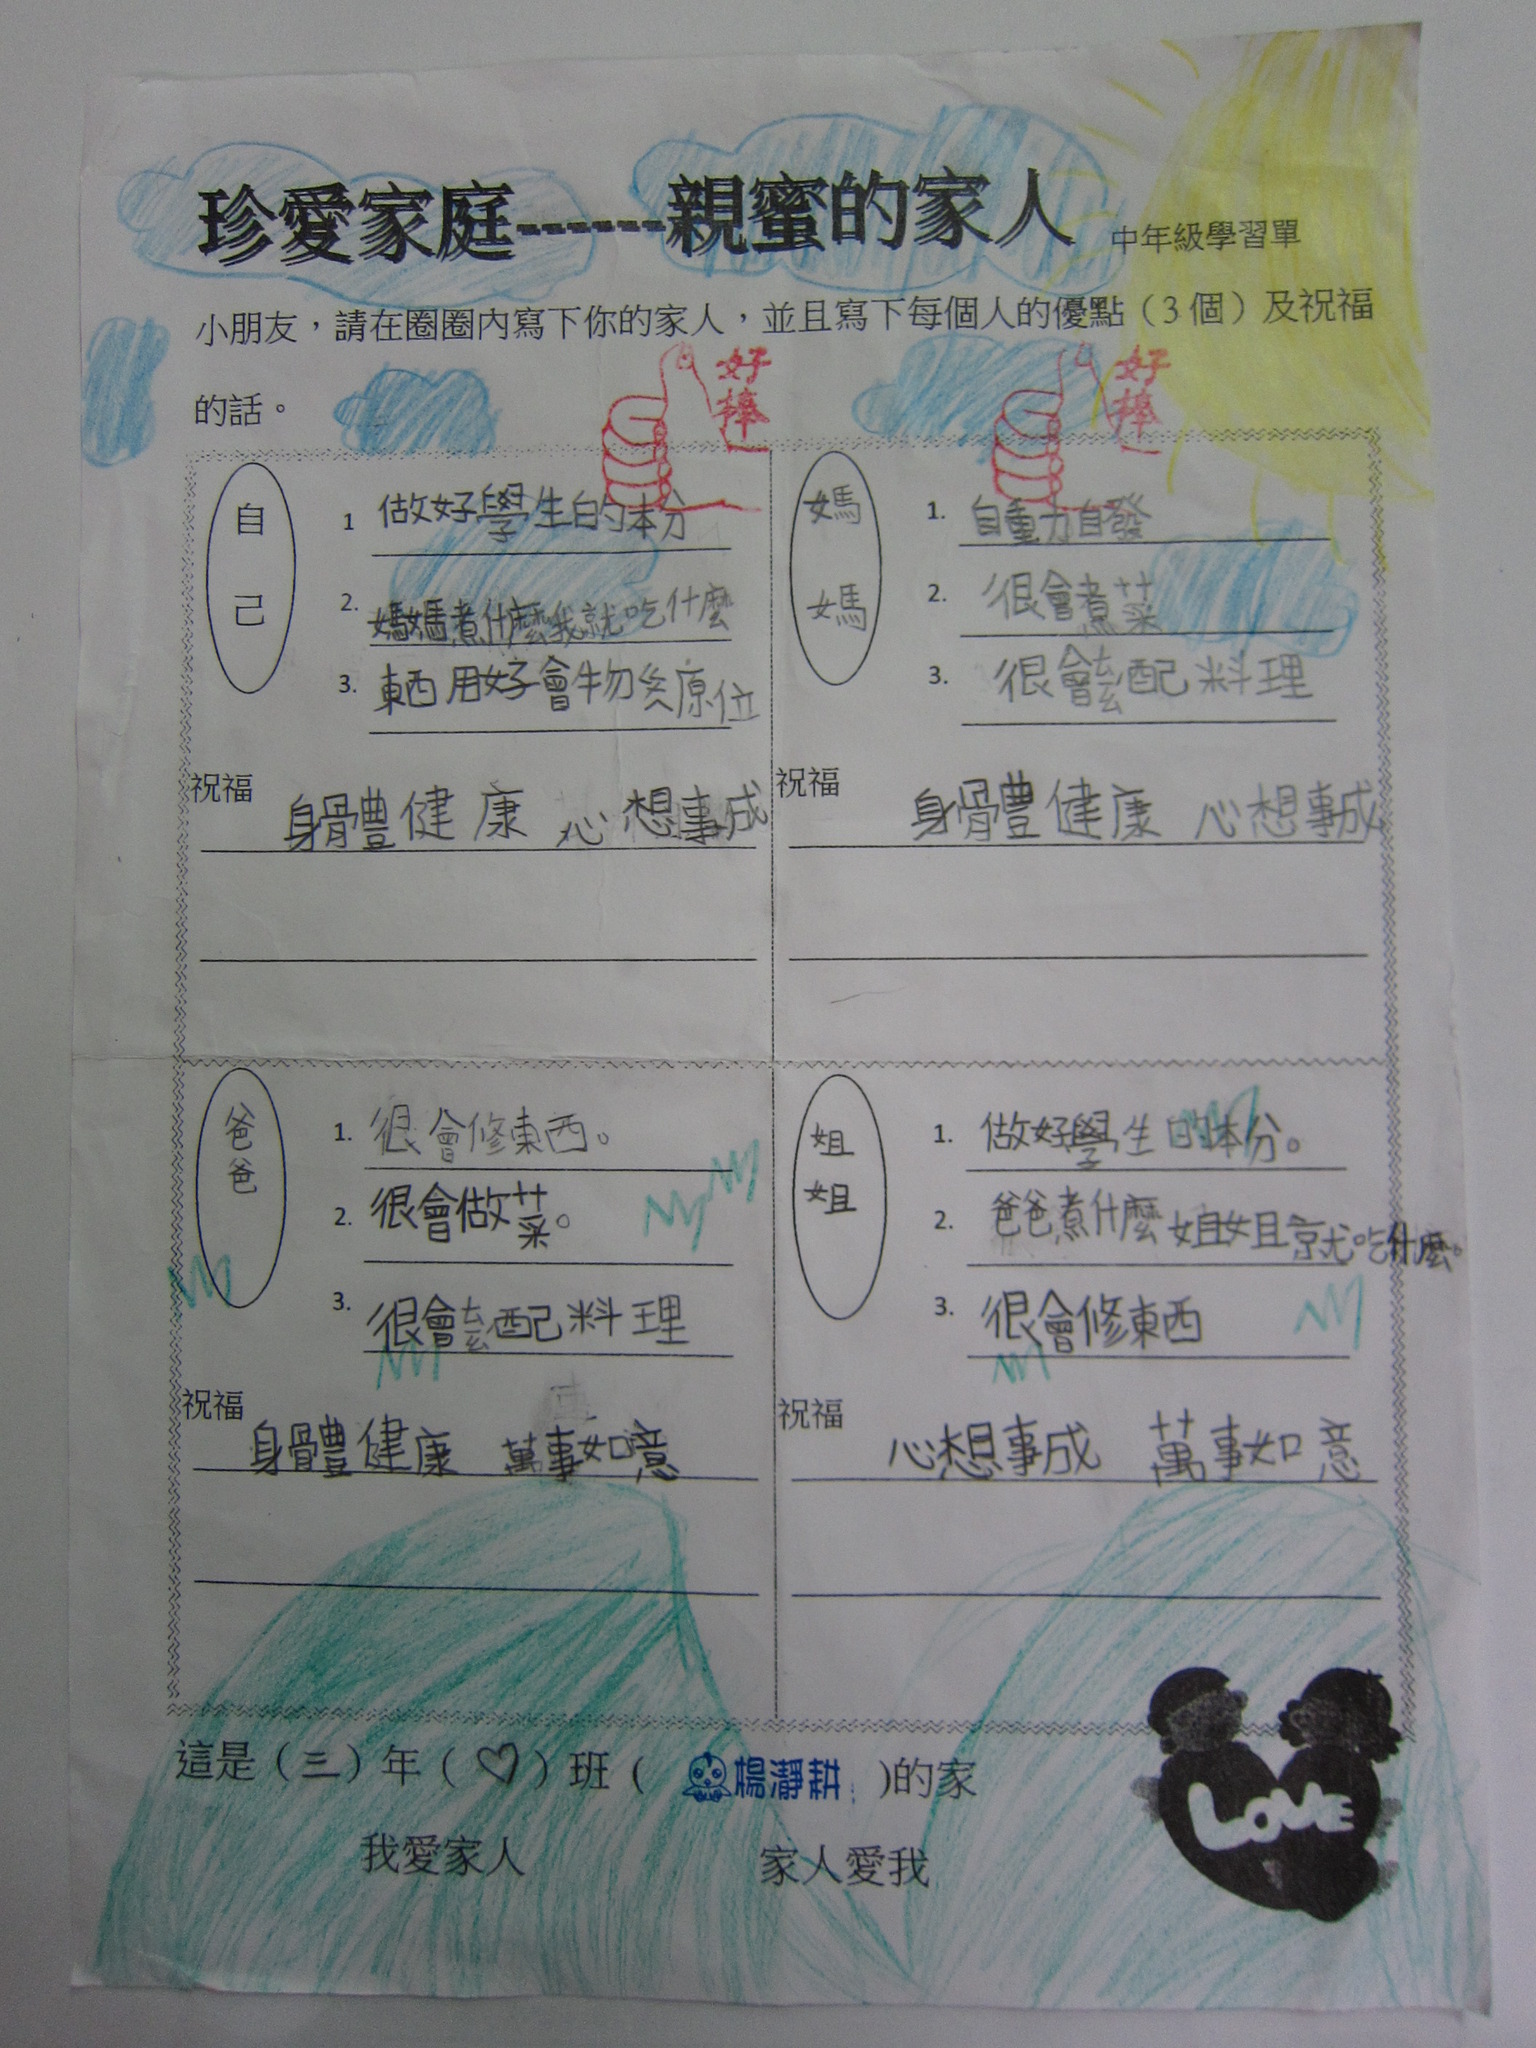 珍愛家庭------親蜜的家人 中年級學習單
小朋友，請在圈圈內寫下你的家人，並且寫下每個人的優點（3個）及祝福
的話。
好棒
好棒
自己
1 做好學生的本分
2. 媽媽煮什麼我就吃什麼
3. 東西用好會物歸原位
祝福
身體健康 心想事成
媽媽
1. 自動自發
2. 很會煮菜
3. 很會ㄊ配料理
祝福
身體健康 心想事成
爸爸
1. 很會修東西。
2. 很會做菜。
3. 很會配料理
祝福
身體健康 萬事如意
姐姐
1. 做好學生的本分。
2. 爸爸煮什麼姐姐就吃什麼。
3. 很會修東西
祝福
心想事成 萬事如意
這是（三）年（♡）班（ 楊瀞耕 )的家
我愛家人 家人愛我
LOVE